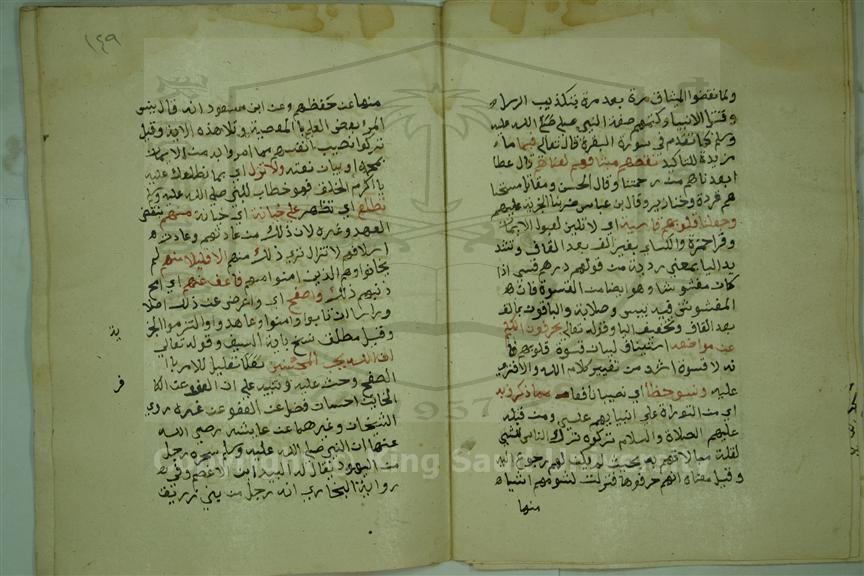 ولما نقضوا الميثاق مرة بعد مرة بتكذيب الرسل
وقتل الانبيا وكتمهم صفة النبي صلى الله عليه
وسلم كما تقدم في سورة البقرة قال تعالى فبما ما
زيدة للتاكيد نقضهم ميثاقهم لعناهم قال عطا
ابعدناهم من رحمتنا وقال الحسن ومقاتل مسخنا
هم قردة وخنازير وقال بن عباس ضربنا الجزية عليهم
وجعلنا قلوبهم قاسية اي لا تلين لقبول الايمان
وقرا حمزة والكساي بغير الف بعد القاف وتشد
يد اليا بمعني ردية من قولهم درهم قسي اذا
كان مغشوشا وهو ايضا من القسوة فان
المغشوش فيه يبس وصلابة والباقون بالف
بعد القاف وتخفيف اليا وقوله تعالى يحرفون الكلم
عن مواضعه استيناف لبيان قسوة قلوبهم فا
نه لا قسوة اشد من تغيير كلام الله والافترا
عليه ونسوا حظا اي نصيبا نافعا مما ذكروا به
اي من التوراة على انبيايهم عيسى ومن قبله
عليهم الصلاة والسلام تركوه ترك الناس للشي
لقلة مبالاتهم به بحيث لم يكن لهم رجوع اليه
وقيل معناه انهم حرفوها فزلت لشومهم اشيا
منها
١٤٩
منها عن حفظهم وعن ابن مسعود انه قال ينسى
المرا بعض العلم بالمعصية وتلا هذه الاية وقيل
تركوا نصيب انفسهم مما امروا به من الايمان
بمحمد وبيان نعته ولا تزال اي بما نطلعك عليه
يا اكرم الخلق فهو خطاب للنبي صلى الله عليه وسلم
تطلع اي تظهر على خاينة اي خيانة منهم بنقض
العهد وغيره لان ذلك من عادتهم وعادة
اسلافهم لا تزال ترى ذلك منهم الا قليلا منهم لم
يخونوا وهم الذين امنوا منهم فاعف عنهم اي امح
ذنبهم ذلك واصفح اي واعرض عن ذلك اصلا
وراسا ان تابوا وامنوا وعاهدوا والتزموا الجز
ية
وقيل مطلق نسخ باية السيف وقوله تعالى
ان الله يحب المحسنين تعليل للامر با
الصفح وحث عليه وتنبيه على ان العفو عن الكا
فر
الخاين احسان فضلا عن العفو عن غيره روي
الشيخان وغيرهما عن عايشة رضي الله
عنها ان النبي صلى الله عليه وسلم سحره رجل
من اليهود يقال له لبيد ابن الاعصم وفي
رواية للبخاري انه رجل من بني زريق
Copyright © King Saud University
1957